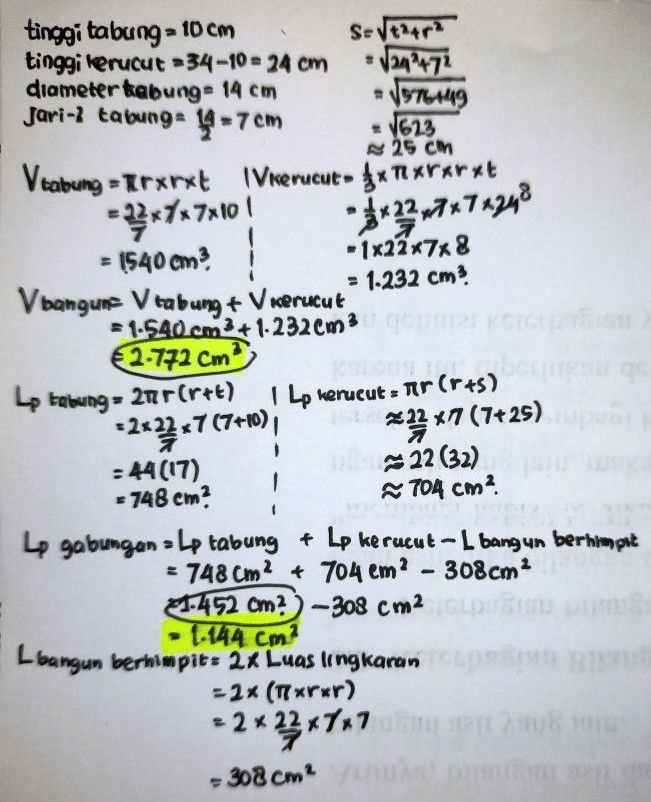 tinggi tabung = 10 cm
tinggi kerucut = 34-10 = 24 cm
diameter tabung = 14 cm
Jari-2 tabung = 14/2 = 7 cm
S = √t²+r²
= √24²+7²
= √576+49
= √623
≈ 25 cm
V tabung = πr×r×t
= 22/7 × 7 × 7 × 10
= 1540 cm³.
V kerucut = 1/3 × π × r × r × t
= 1/3 × 22/7 × 7 × 7 × 24 8
= 1×22×7×8
= 1.232 cm³.
V bangun = V tabung + V kerucut
= 1.540 cm³ + 1.232 cm³
= 2.772 cm³
Lp tabung = 2πr(r+t)
= 2×22/7 × 7 (7+10)
= 44(17)
= 748 cm².
Lp kerucut = πr(r+s)
≈ 22/7 × 7 (7+25)
≈ 22(32)
≈ 704 cm².
Lp gabungan = Lp tabung + Lp kerucut - L bangun berhimpit
= 748 cm² + 704 cm² - 308 cm²
= 1.452 cm² - 308 cm²
= 1.144 cm²
L bangun berhimpit = 2 × Luas lingkaran
= 2 × (π×r×r)
= 2 × 22/7 × 7 × 7
= 308 cm²